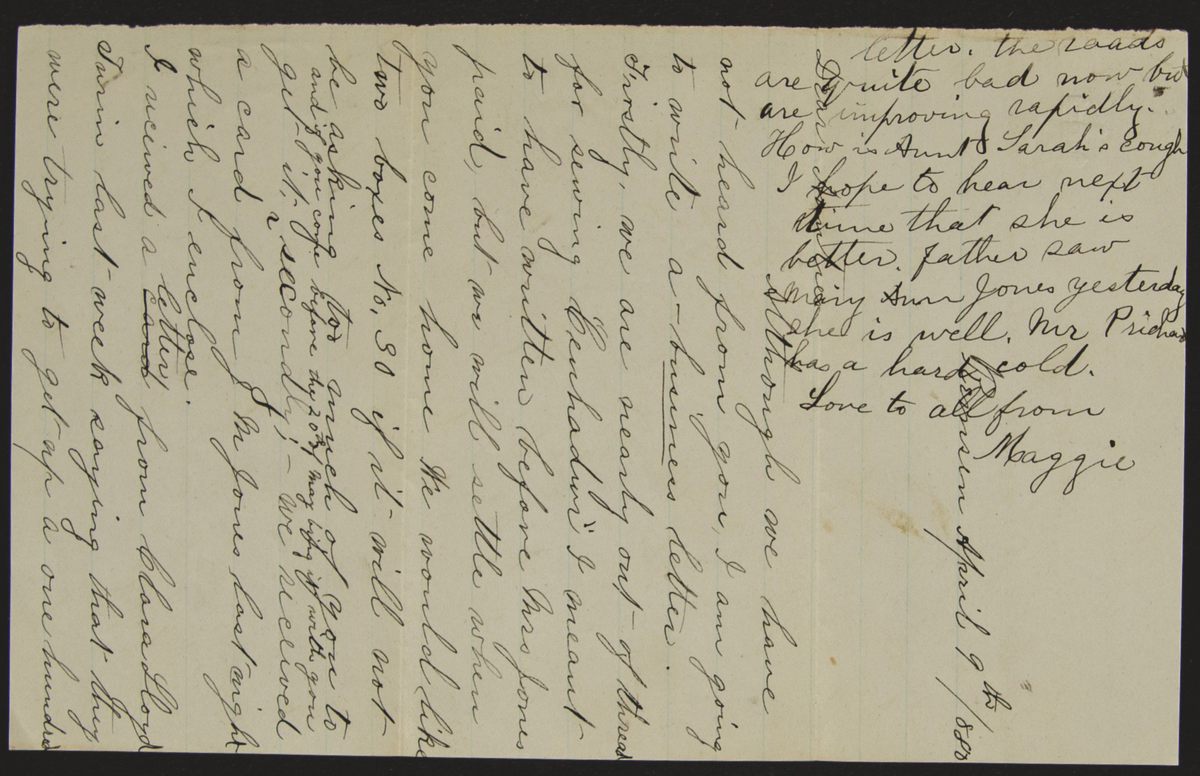 April 9th 1880
Dear
Although we have
not heard from you, I am going
to write a business letter.
Firstly, we are nearly out of thread
for sewing "Cenhadwr" I meant
to have written before Mrs Jones
paid, but we will settle when
you come home We would like
two boxes No. 30 if it will not
be asking too much of you to
and if you come before May bring it with you
get it, secondly; - we received
a card from J M Jones last night
which I enclose.
I received a card letter from Clara Lloyd
last week saying that they
were trying to get up a one hundred
letter. the roads
are quite bad now but
are improving rapidly.
How is Aunt Sarah's cough
I hope to hear next
time that she is
better. Father saw
Mary Ann Jones yesterday
she is well. Mr Prichard
has a hard cold.
Love to all from
Maggie